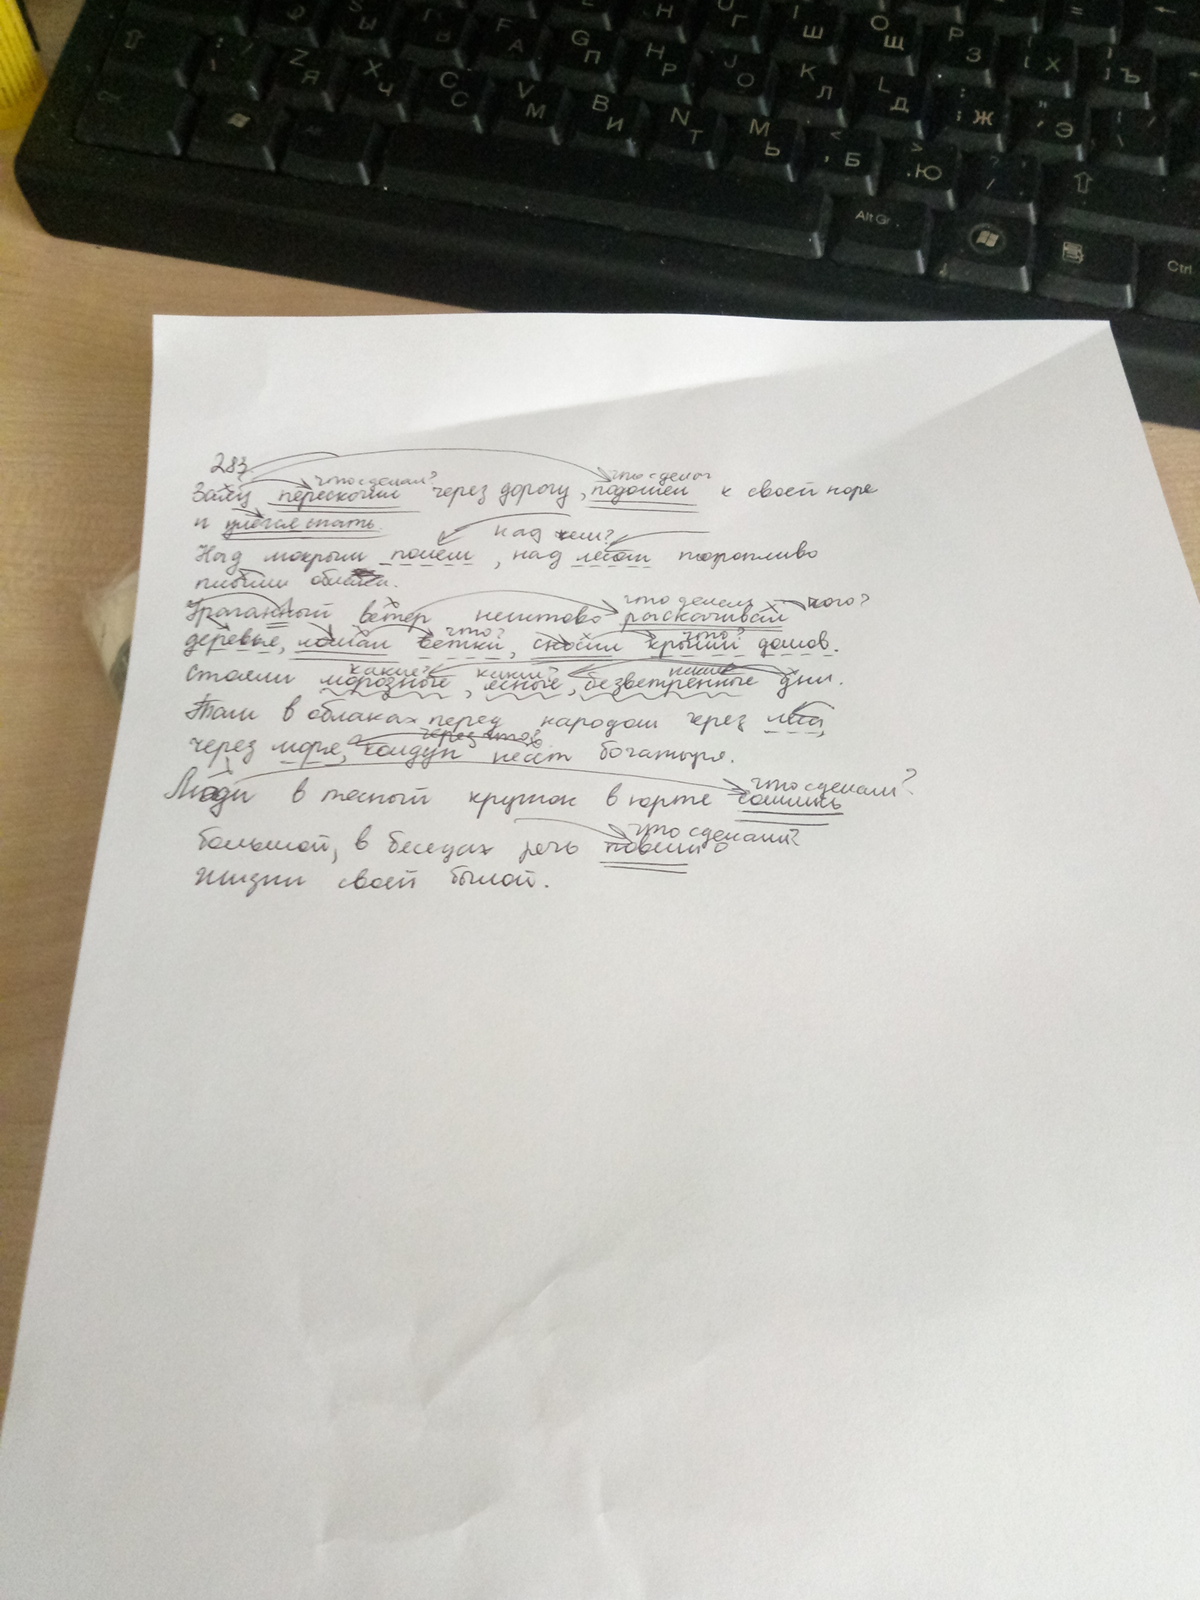 283.
что сделал? что сделал
Заяц перескочил через дорогу, подошел к своей норе
и улёгся спать.
над чем?
Над мокрым полем, над лесом торопливо
плыли облака.
что делал кого?
Ураганный ветер неистово раскачивал
что? что?
деревья, ломал ветки, сносил крыши домов.
какие? какие? какие
Стояли морозные, ясные, безветренные дни.
Там в облаках перед народом через леса,
через что?
через моря, колдун несёт богатыря.
что сделали?
Люди в тесный кружок в юрте сошлись
что сделали?
большой, в беседах речь повели о
жизни своей былой.
Alt Gr
Ctrl